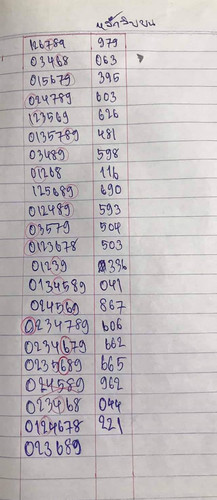 หลักสิบบน
126789 979
03468 063
015679 395
024789 603
123569 626
0135789 481
03489 598
01268 116
125689 690
012489 593
03579 504
0123678 503
01239 336
0134589 041
024569 867
0234789 606
0234679 662
0235689 665
024589 962
023468 044
0124678 221
023689